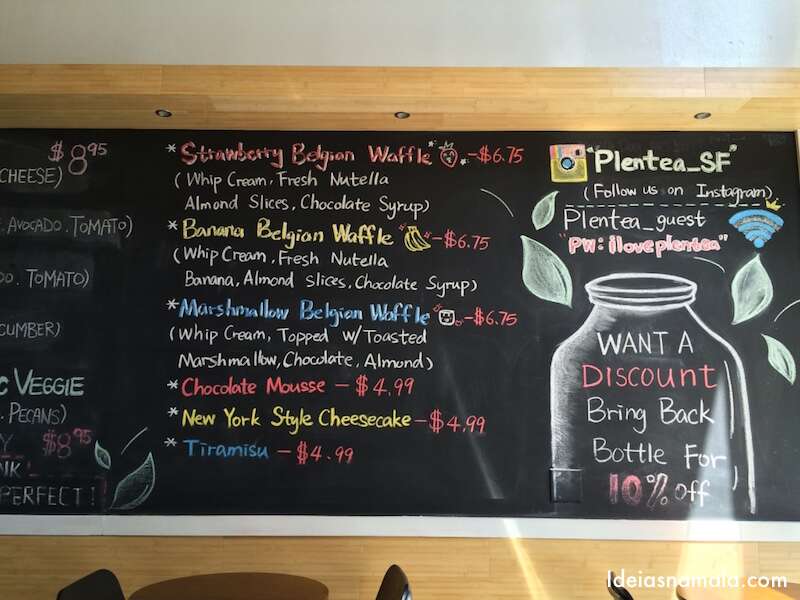 $8.95
CHEESE)
AVOCADO. TOMATO)
DO. TOMATO)
CUCUMBER)
C VEGGIE
. PECANS)
Y $8.95
NK
PERFECT!
* Strawberry Belgian Waffle -$6.75
(Whip Cream, Fresh Nutella
Almond Slices, Chocolate Syrup)
* Banana Belgian Waffle -$6.75
(Whip Cream, Fresh Nutella
Banana, Almond Slices, Chocolate Syrup)
* Marshmallow Belgian Waffle -$6.75
(Whip Cream, Topped w/Toasted
Marshmallow, Chocolate, Almond)
* Chocolate Mousse - $4.99
* New York Style Cheesecake - $4.99
* Tiramisu - $4.99
"Plentea_SF"
(Follow us on Instagram)
Plentea_guest
"PW: iloveplentea"
WANT A
DISCOUNT
Bring Back
Bottle For
10% Off
Ideiasnamala.com